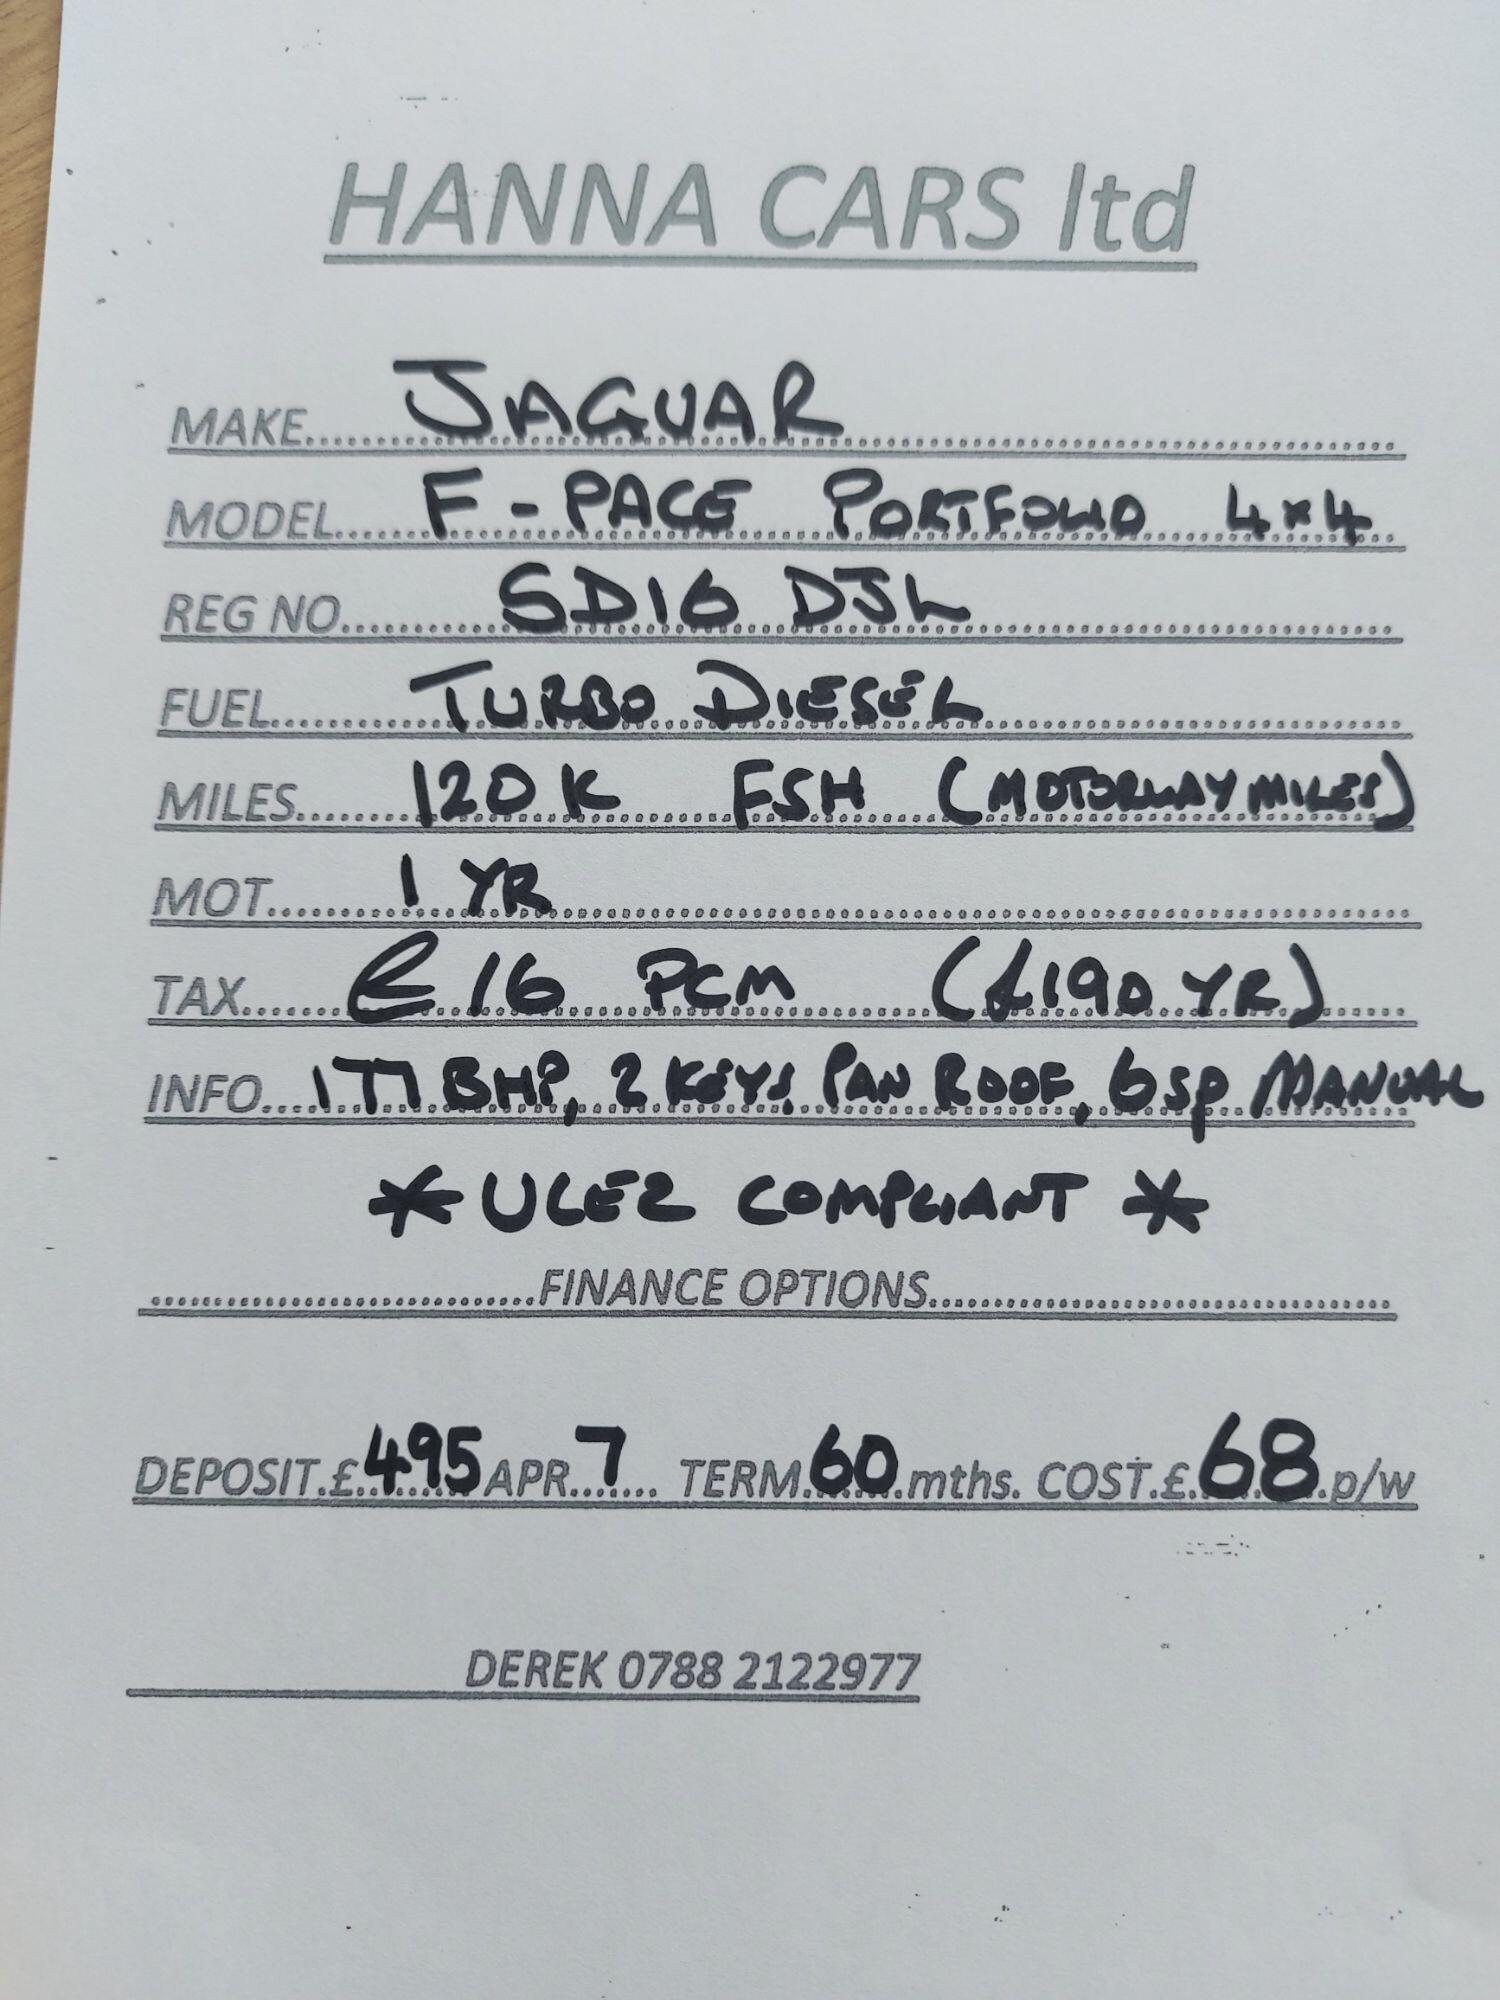 HANNA CARS ltd
MAKE.......JAGUAR
MODEL....F-PACE PORTFOLIO 4x4
REG NO........SD16 DJL
FUEL........TURBO DIESEL
MILES.......120K FSH (MOTORWAY MILES)
MOT.......1 YR
TAX.....@ 16 PCM (£190 YR)
INFO...177 BHP, 2 KEYS, PAN ROOF, 6SP MANUAL
* ULEZ COMPLIANT *
........FINANCE OPTIONS........
DEPOSIT.£495 APR..7 TERM.60.mths. COST.£.68.p/w
DEREK 0788 2122977